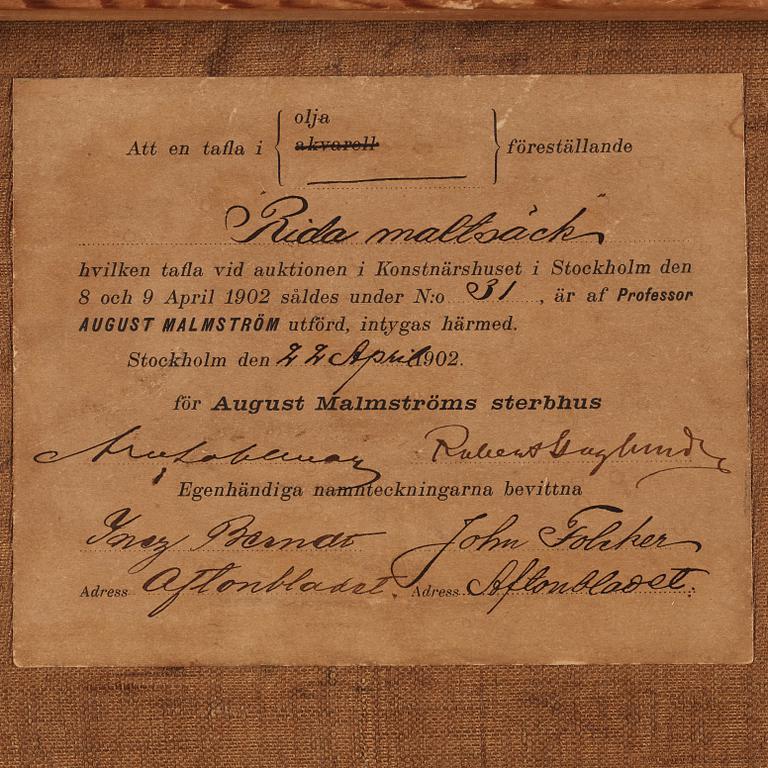 olja
Att en tafla i akvarell föreställande
"Rida maltsäck"
hvilken tafla vid auktionen i Konstnärshuset i Stockholm den
8 och 9 April 1902 såldes under N:o 31, är af Professor
AUGUST MALMSTRÖM utförd, intygas härmed.
Stockholm den 22 April 1902.
för August Malmströms sterbhus
Robert Haglund
Egenhändiga namnteckningarna bevittna
Inez Berndt John Folcker
Adress Aftonbladet. Adress Aftonbladet.